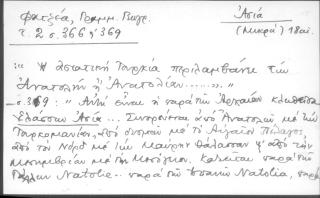 φατζέα, Γραμμ. Γεωγρ. Ἀσία
τ. 2 σ. 366 ψ 369 (Μικρά) 18 αἰ.
:: " Ἡ ἀσιατικὴ Τουρκία περιλαμβάνει τὴν
Ἀνατολὴν ἢ Ἀνατολίαν ........ "
σ. 369 : " Αὐτὴ εἶναι ἡ παρὰ τῶν Ἀρχαίων κληθεῖσα
Ἐλάσσων Ἀσία ... Συνορεύεται ἀπὸ Ἀνατολῶν μὲ τὴν
Τουρκομανίαν, ἀπὸ δυσμῶν μὲ τὸ Αἰγαῖον Πέλαγος,
ἀπὸ τοῦ Νόρδ μὲ τὴν Μαύρην Θάλασσαν ψ ἀπὸ τὴν
Μεσημβρίαν μὲ τὴν Μεσόγειον. Καλεῖται παρὰ τῶν
Γάλλων Natolie .. παρὰ τῶν Ἱσπανῶν Natolia, παρὰ